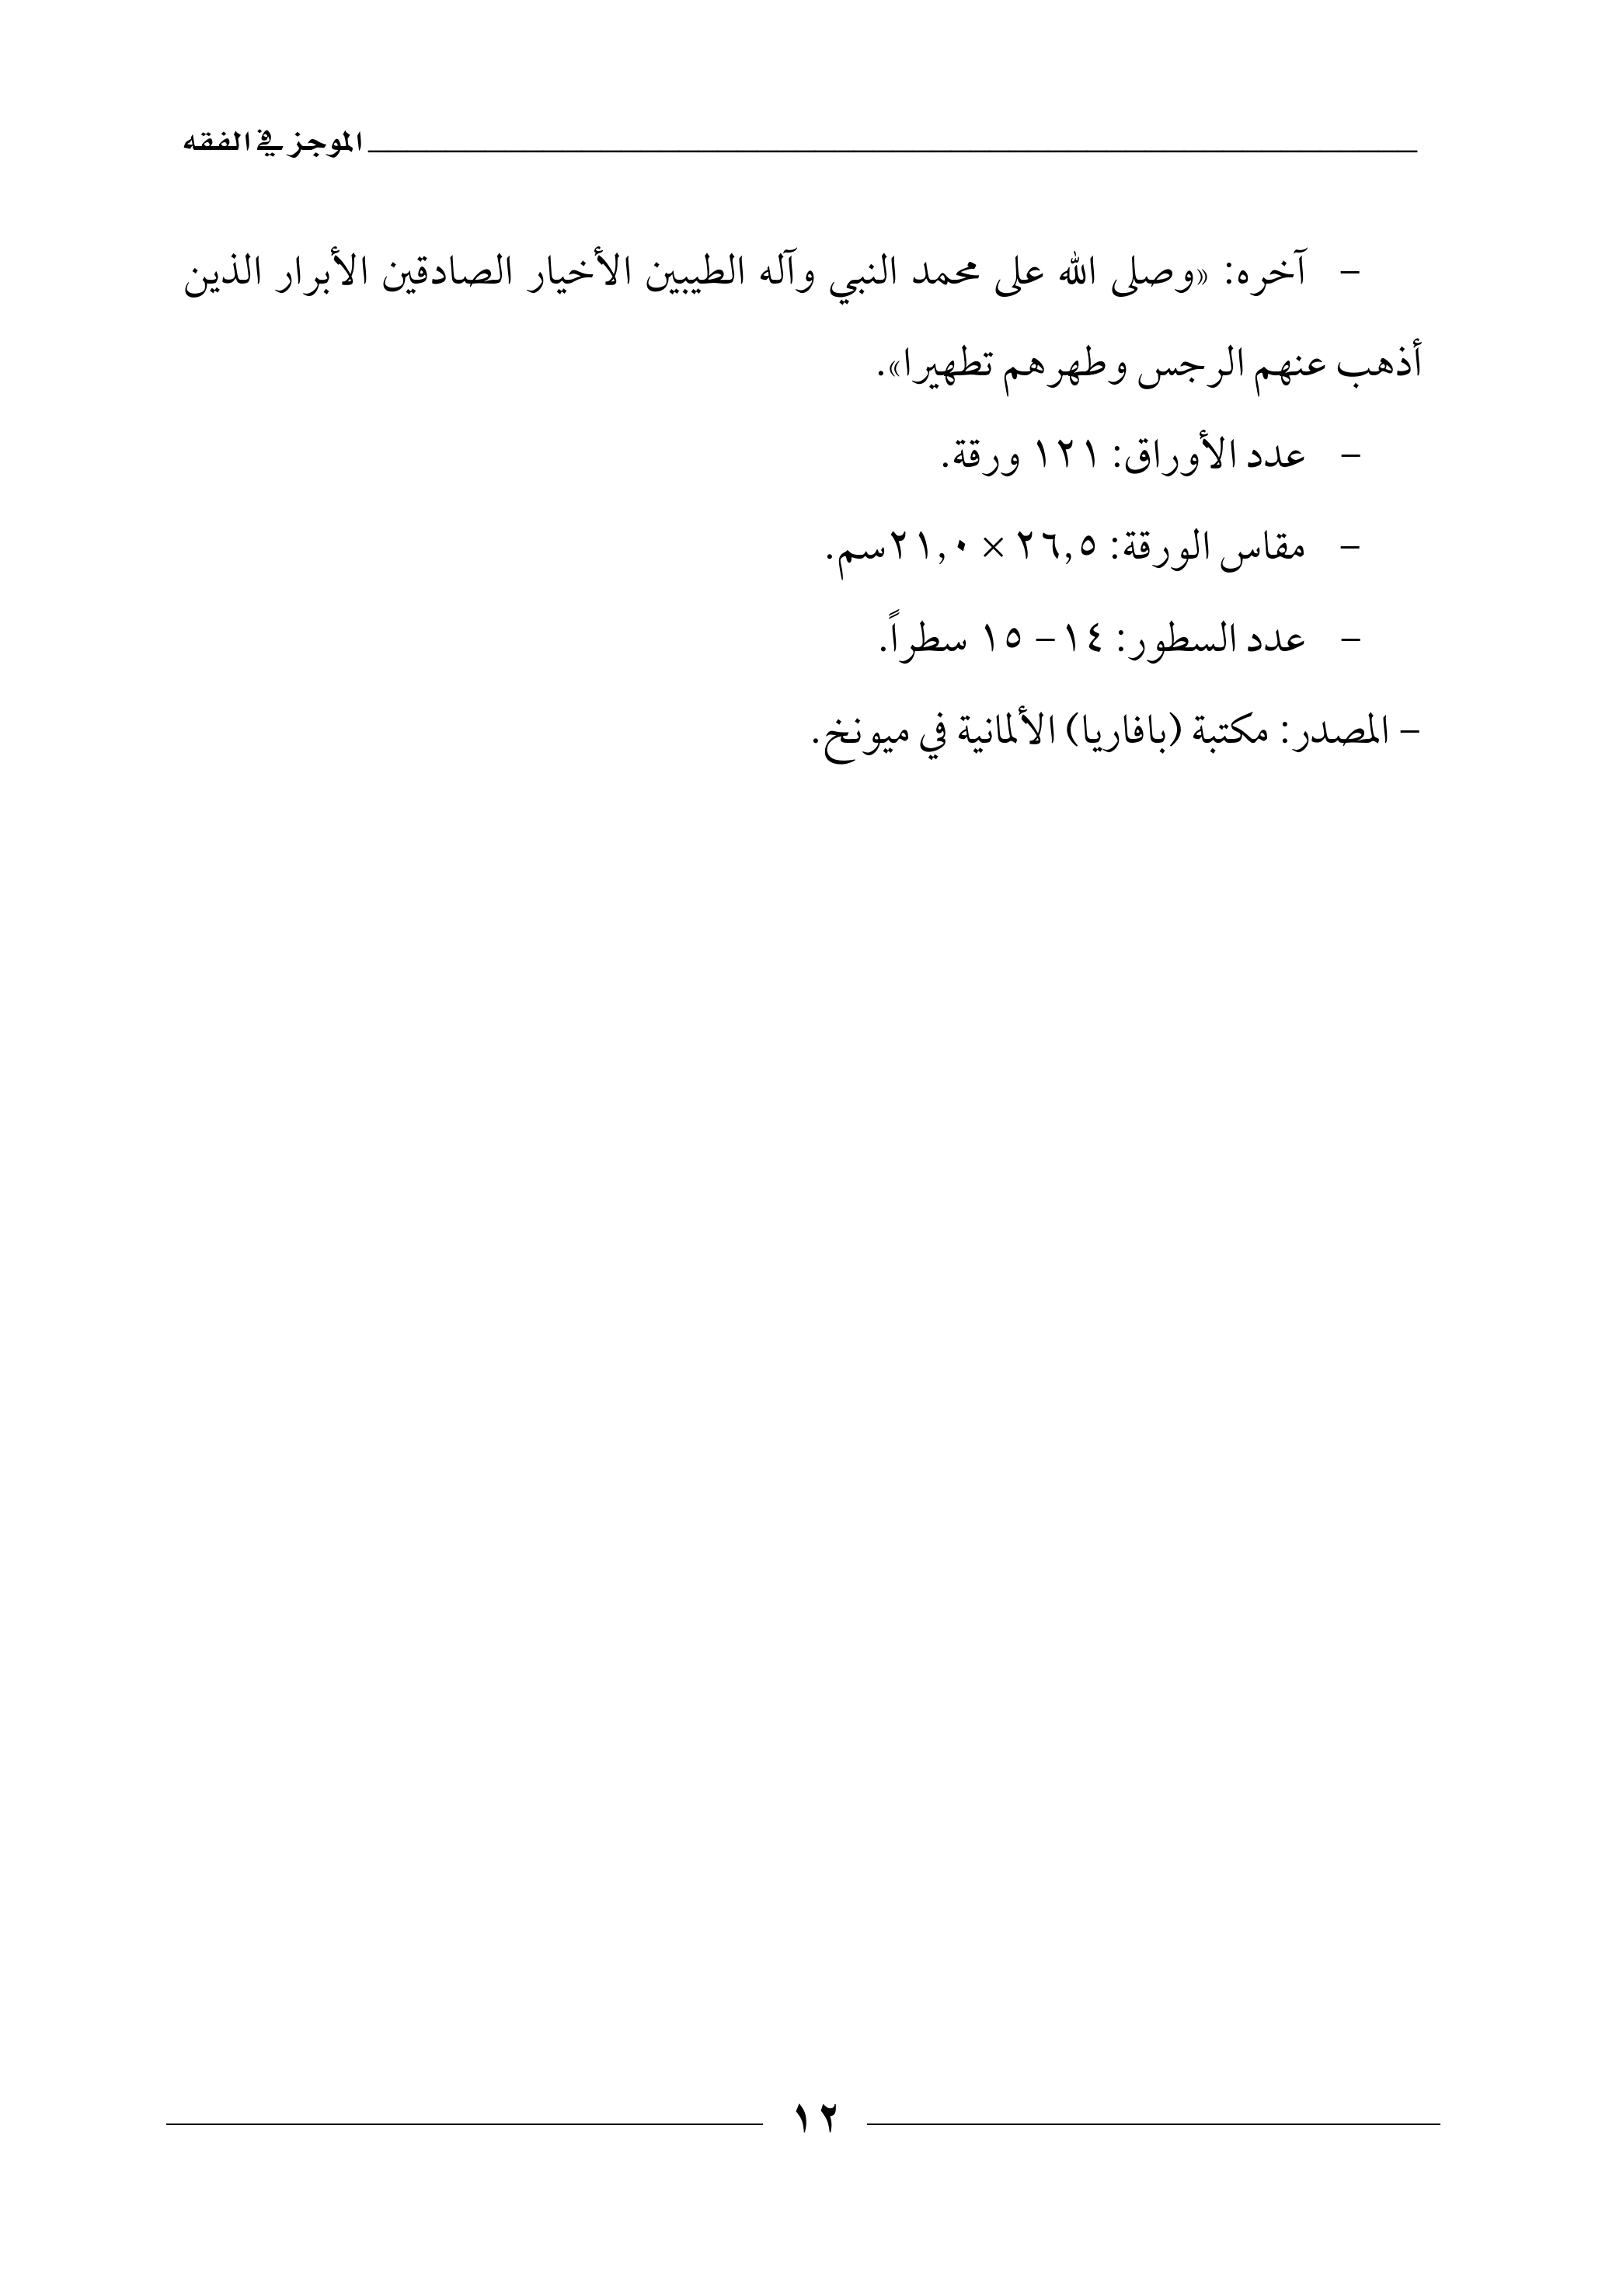 الموجز في الفقه
- آخره: «وصلى الله على محمد النبي وآله الطيبين الأخيار الصادقين الأبرار الذين
أذهب عنهم الرجس وطهرهم تطهيرا».
- عدد الأوراق: ١٢١ ورقة.
- مقاس الورقة: ٢٦,٥ × ٢١,٠سم.
- عدد السطور: ١٤- ١٥ سطراً.
- المصدر: مكتبة (بافاريا) الألمانية في ميونخ.
١٢